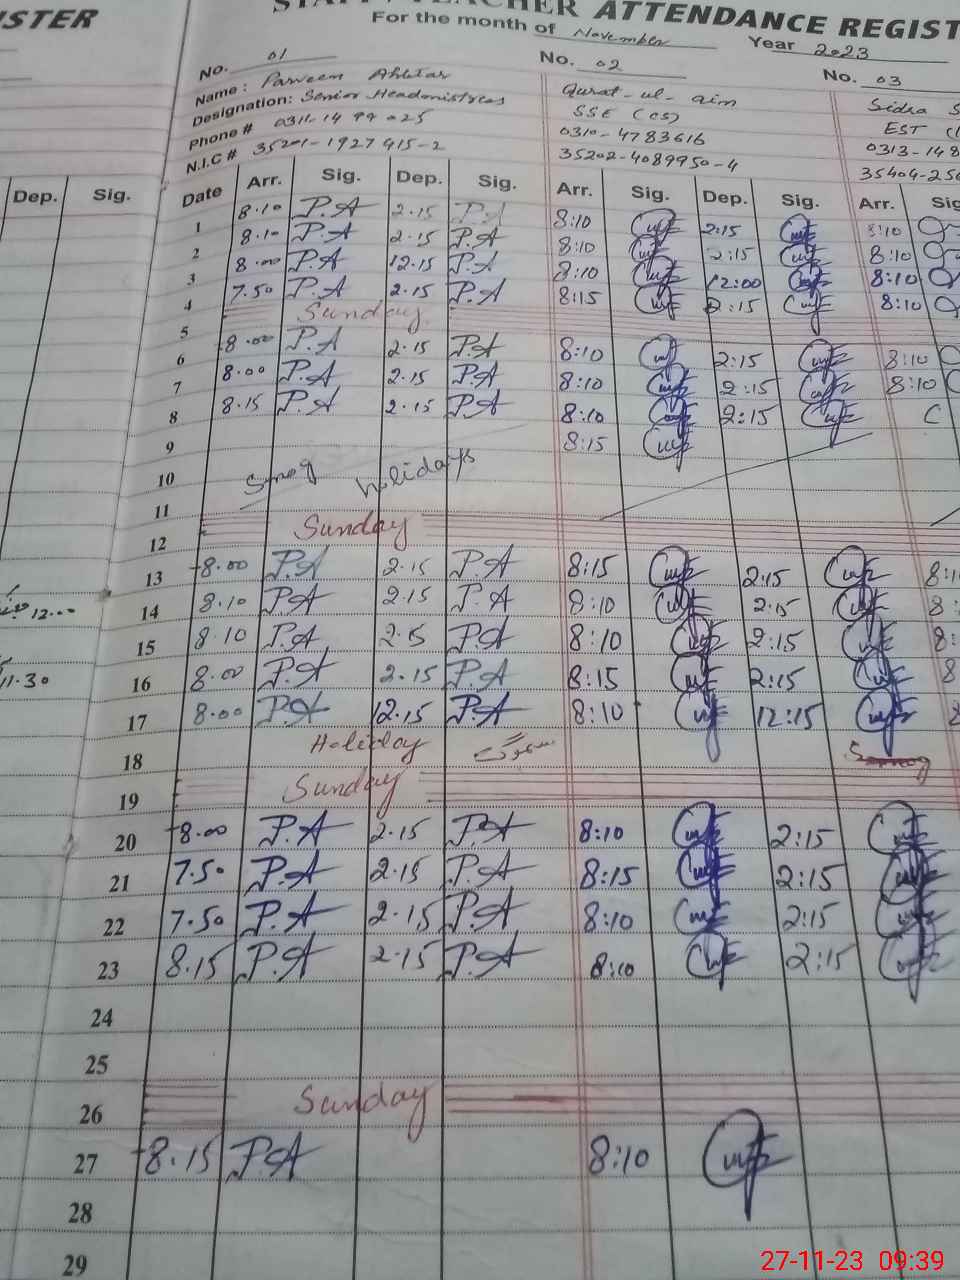 ISTER
STAFF / TEACHER ATTENDANCE REGIST
For the month of November Year 2023
No. 01 No. 02 No. 03
Name: Parveen Akhtar Qurat-ul-ain Sidra S
Designation: Senior Headmistress SSE (CS) EST (
Phone # 0311-14 99 025 0310-4783616 0313-148
N.I.C # 35201-1927415-2 35202-4089950-4 35404-256
Dep. Sig. Date Arr. Sig. Dep. Sig. Arr. Sig. Dep. Sig. Arr. Sig
1 8.10 P.A 2.15 P.A 8:10 2:15 8:10
2 8.10 P.A 2.15 P.A 8:10 2:15 8:10
3 8.00 P.A 12.15 P.A 8:10 12:00 8:10
4 7.50 P.A 2.15 P.A 8:15 2:15 8:10
5 Sunday
6 8.00 P.A 2.15 P.A 8:10 2:15 8:10
7 8.00 P.A 2.15 P.A 8:10 2:15 8:10
8 8.15 P.A 2.15 P.A 8:10 2:15 C
9 8:15
10 Smog holidays
11
12 Sunday
13 8.00 P.A 2.15 P.A 8:15 2:15 8:1
14 8.10 P.A 2.15 P.A 8:10 2:15 8:
12.00
15 8.10 P.A 2.15 P.A 8:10 2:15 8:
16 8.00 P.A 2.15 P.A 8:15 2:15 8
11.30
17 8.00 P.A 12.15 P.A 8:10 12:15
18 Holiday سموگ Smog
19 Sunday
20 8.00 P.A 2.15 P.A 8:10 2:15
21 7.50 P.A 2.15 P.A 8:15 2:15
22 7.50 P.A 2.15 P.A 8:10 2:15
23 8.15 P.A 2.15 P.A 8:10 2:15
24
25
26 Sunday
27 8.15 P.A 8:10
28
29
27-11-23 09:39